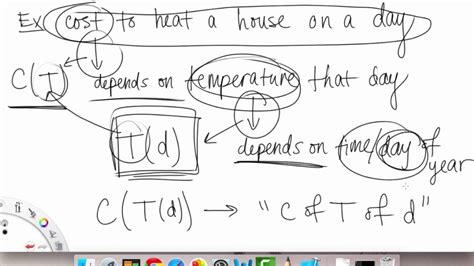 Ex cost to heat a house on a day
C(T) depends on temperature that day
T(d) depends on time/day of year
C(T(d)) → "C of T of d"